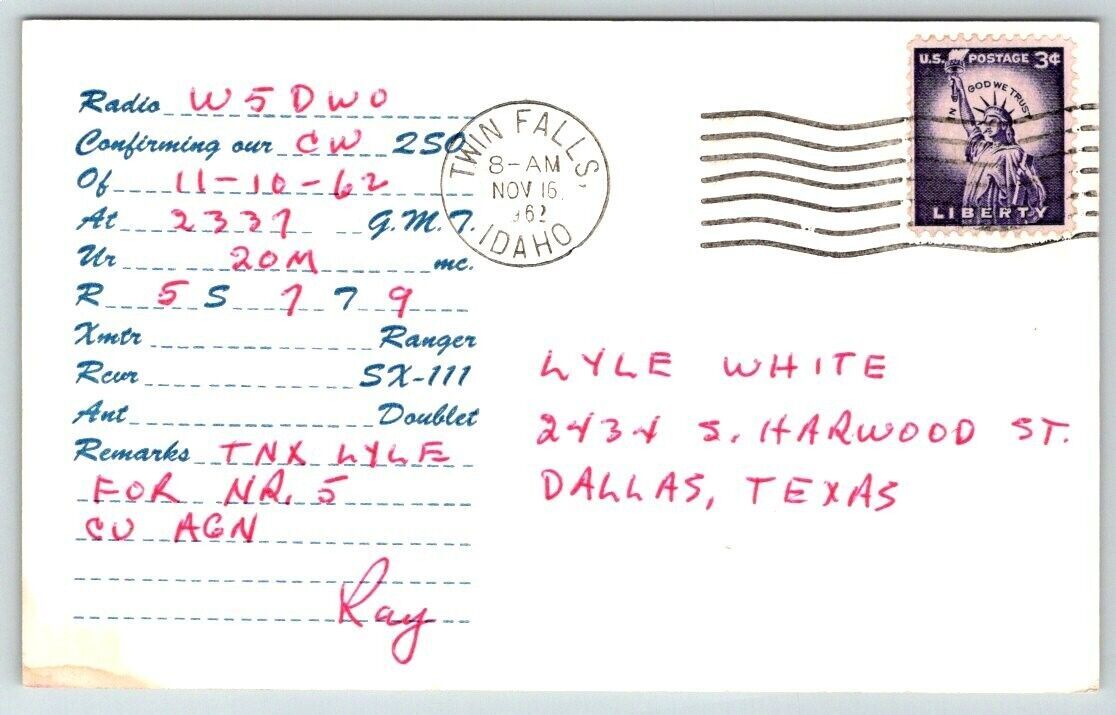 Radio W5DWO
Confirming our CW QSO
Of 11-10-62
At 2337 G.M.T.
Ur 20M mc.
R 5 S 7 T 9
Xmtr Ranger
Rcvr SX-111
Ant Doublet
Remarks TNX LYLE
FOR NR. 5
CU AGN
Ray
TWIN FALLS.
8-AM
NOV 16
1962
IDAHO
U.S. POSTAGE 3¢
IN GOD WE TRUST
LIBERTY
LYLE WHITE
2434 S. HARWOOD ST.
DALLAS, TEXAS